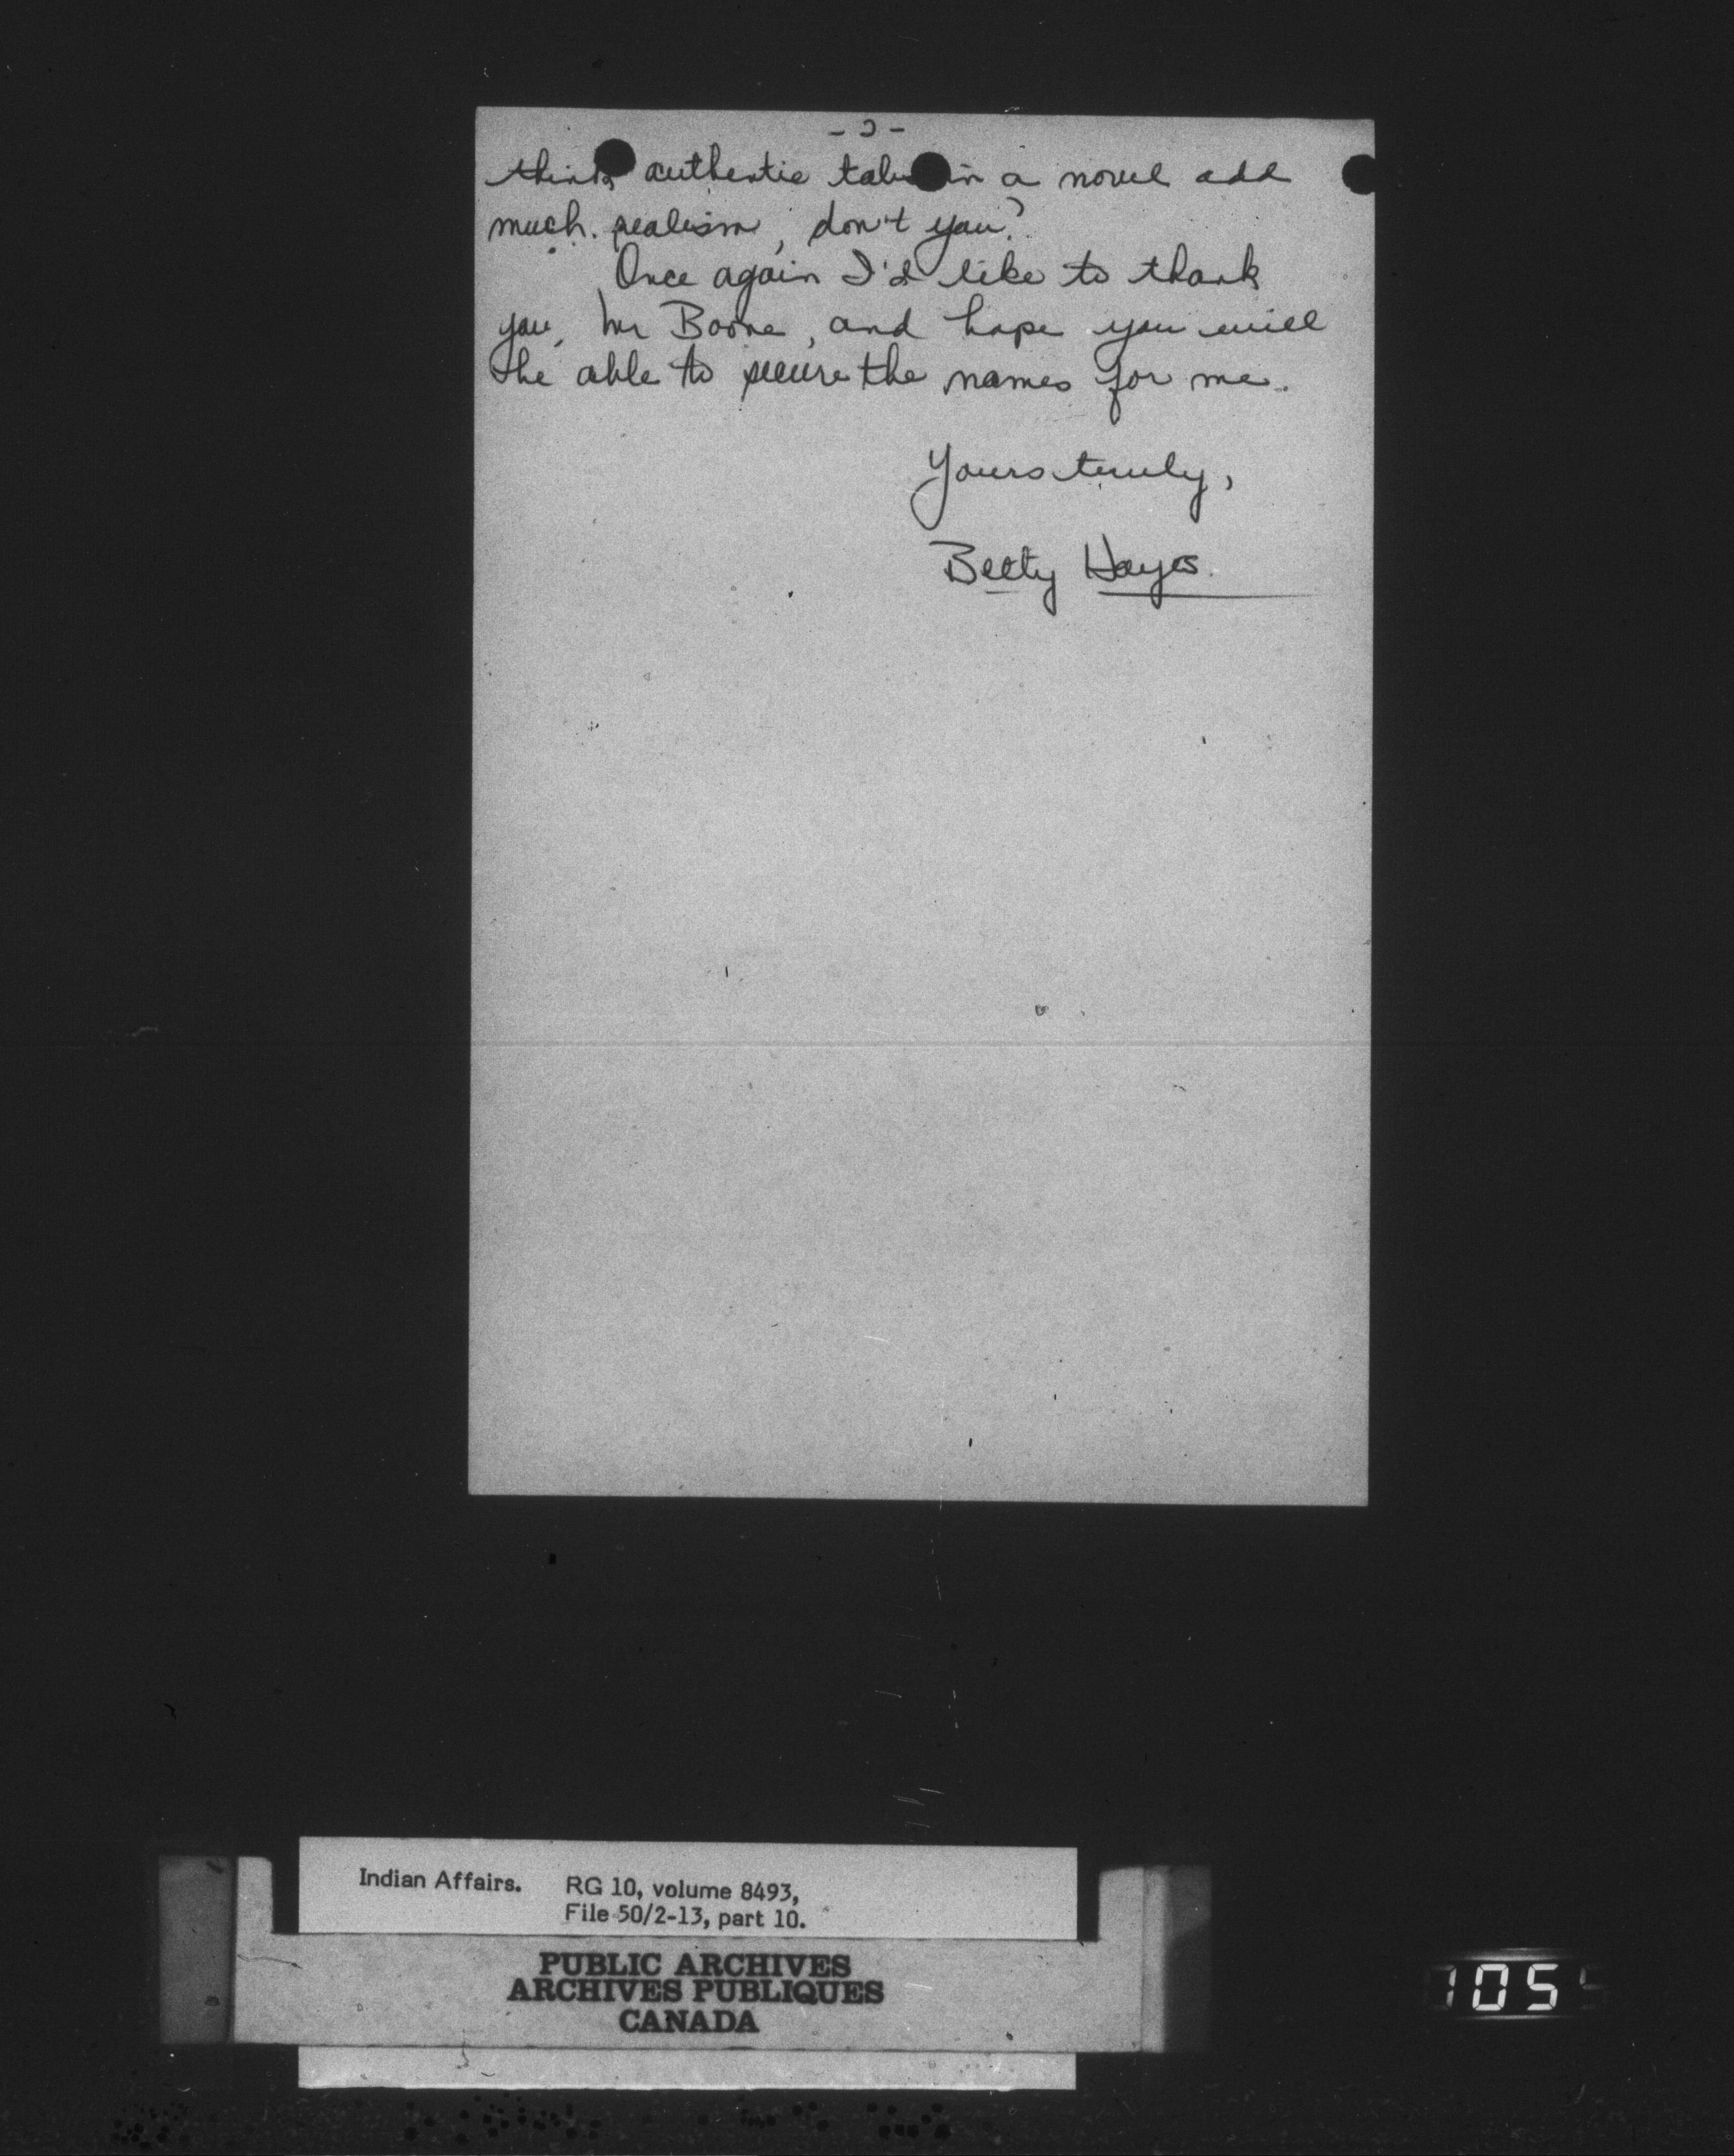 think authentic tales in a novel add
much realism, don't you?
Once again I'd like to thank
you, Mr Boone, and hope you will
be able to secure the names for me.
Yours truly,
Betty Hayes.
Indian Affairs. RG 10, volume 8493,
File 50/2-13, part 10.
PUBLIC ARCHIVES
ARCHIVES PUBLIQUES
CANADA